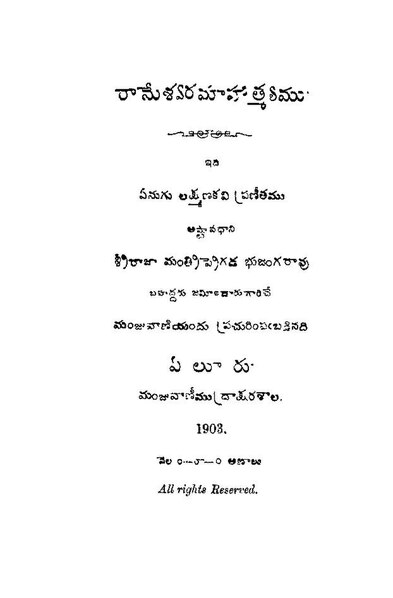 రామేశ్వరమాహాత్మ్యము
ఇది
ఏనుగు లక్ష్మణకవి ప్రణీతము
అష్టావధాని
శ్రీరాజా మంత్రిప్రెగడ భుజంగరావు
బహద్దరు జమీందారుగారిచే
మంజువాణియందు ప్రచురింపఁబడినది
ఏ లూ రు
మంజువాణీముద్రాక్షరశాల.
1903.
వెల ౦—౧—౦ అణాలు
All rights Reserved.